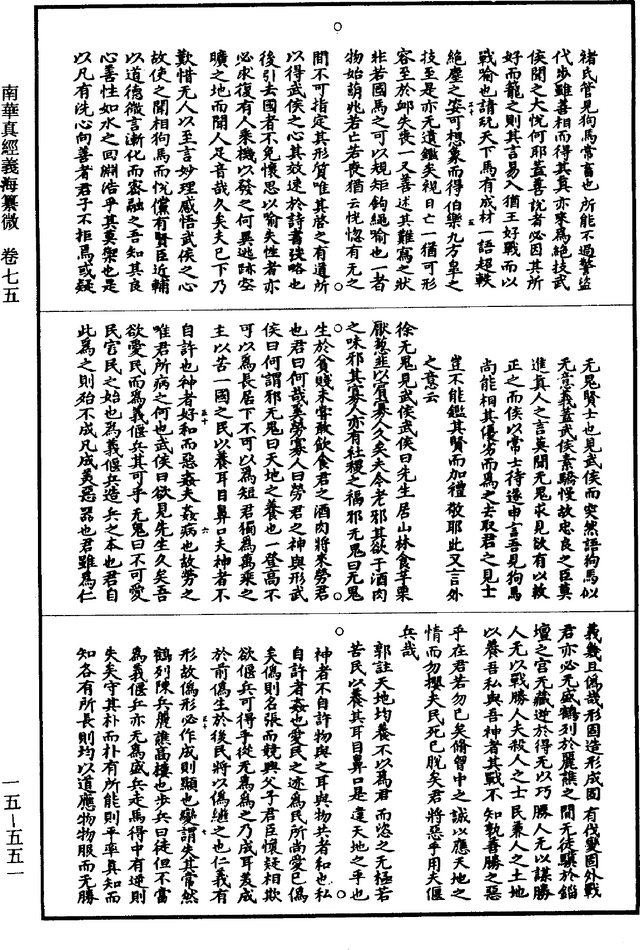 南華真經義海纂微 卷七五
一五—五五一
褚氏管見狗馬常畜也所能不過警盜
代步雖善相而得其真亦來爲絕技武
侯聞之大悅何耶蓋善說者必因其所
好而籠之則其言易入猶王好戰而以
戰喻也請玩天下馬有成材一語超軼
絕塵之姿可想象而得伯樂九方臯之
技至是亦无遺鑑矣視日亡一猶可形
容至於卹失喪一又善述其難寫之狀
非若國馬之可以規矩鉤繩喻也一者
物始萌兆若亡若喪猶云恍惚有无之
間不可指定其形質唯其啓之有道所
以得武侯之心其效速於詩書弢略也
後引去國者不免懷思以喻失性者亦
必求復有人乘機以發之何異逃跡空
曠之地而聞人足音哉久矣夫已下乃
歎惜无人以至言妙理感悟武侯之心
故使之聞相狗馬而悅儻有賢臣近輔
以道德微言漸化而密融之吾知其良
心善性如水之回淵浩乎其莫禦也是
以凡有洗心向善者君子不拒焉或疑
无鬼賢士也見武侯而突然語狗馬似
无意義蓋武侯素驕慢故忠良之臣莫
進真人之言莫聞无鬼求見欲有以救
正之而侯以常士待遂申言吾見狗馬
尚能相其優劣而爲之去取君之見士
豈不能鑑其賢而加禮敬耶此又言外
之意云
徐无鬼見武侯武侯曰先生居山林食芧栗
厭葱韭以賓寡人久矣夫今老邪其欲于酒肉
之味邪其寡人亦有社稷之福邪无鬼曰无鬼
生於貧賤未嘗敢飲食君之酒肉將來勞君
也君曰何哉奚勞寡人曰勞君之神與形武
侯曰何謂邪无鬼曰天地之養也一登高不
可以爲長居下不可以爲短君獨爲萬乘之
主以苦一國之民以養耳目鼻口夫神者不
自許也神者好和而惡姦夫姦病也故勞之
唯君所病之何也武侯曰欲見先生久矣吾
欲愛民而爲義偃兵其可乎无鬼曰不可愛
民害民之始也爲義偃兵造兵之本也君自
此爲之則殆不成凡成美惡器也君雖爲仁
義幾且僞哉形固造形成固有伐變固外戰
君亦必无盛鶴列於麗譙之間无徒驥於錙
壇之宮无藏逆於得无以巧勝人无以謀勝
人无以戰勝人夫殺人之士民兼人之土地
以養吾私與吾神者其戰不知孰善勝之惡
乎在君若勿已矣脩胷中之誠以應天地之
情而勿攖夫民死已脫矣君將惡乎用夫偃
兵哉
郭註天地均養不以爲君而恣之无極若
苦民以養其耳目鼻口是違天地之平也
神者不自許物與之耳與物共者和也私
自許者姦也愛民之迹爲民所尚愛已僞
矣僞則名張而競興父子君臣懷疑相欺
欲偃兵可得乎從无爲爲之乃成耳美成
於前僞生於後民將以僞繼之也仁義有
形故僞形必作成則顯也變謂失其常然
鶴列陳兵麗譙高樓也步兵曰徒但不當
爲義偃兵亦无爲盛兵走馬得中有逆則
失矣守其朴而朴有所能則平率真知而
知各有所長則均以道應物物服而无勝